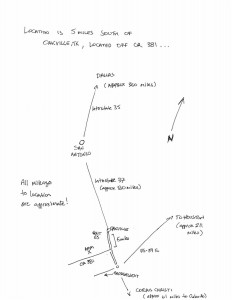 LOCATION IS 5 MILES SOUTH OF
OAKVILLE, TX, LOCATED OFF CR 381 ...
DALLAS
(APPROX 350 MILES)
INTERSTATE 35
N
SAN
ANTONIO
INTERSTATE 37
(approx 80 miles)
All mileage
to location
are approximate!
TO HOUSTON
(approx 211
miles)
OAKVILLE
5 miles
CR 381
US-59 E
CORPUS CHRISTI